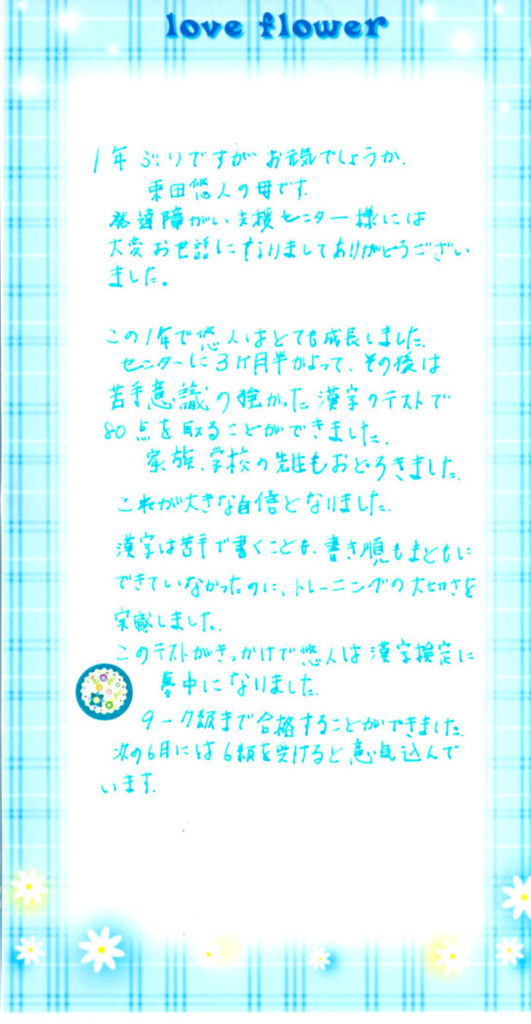 love flower
1年ぶりですが お元気でしょうか.
栗田悠人の母です.
発達障がい支援センター様には
大変お世話になりましてありがとうござい
ました。
この1年で悠人はとても成長しました.
センターに3ヶ月半かよって、その後は
苦手意識の強かった漢字のテストで
80点を取ることができました.
家族、学校の先生もおどろきました.
これが大きな自信となりました.
漢字は苦手で書くことも、書き順もまともに
できていなかったのに、トレーニングの大切さを
実感しました.
このテストがきっかけで悠人は漢字検定に
夢中になりました.
9〜7級まで合格することができました.
次の6月には6級を受けると意気込んで
います.